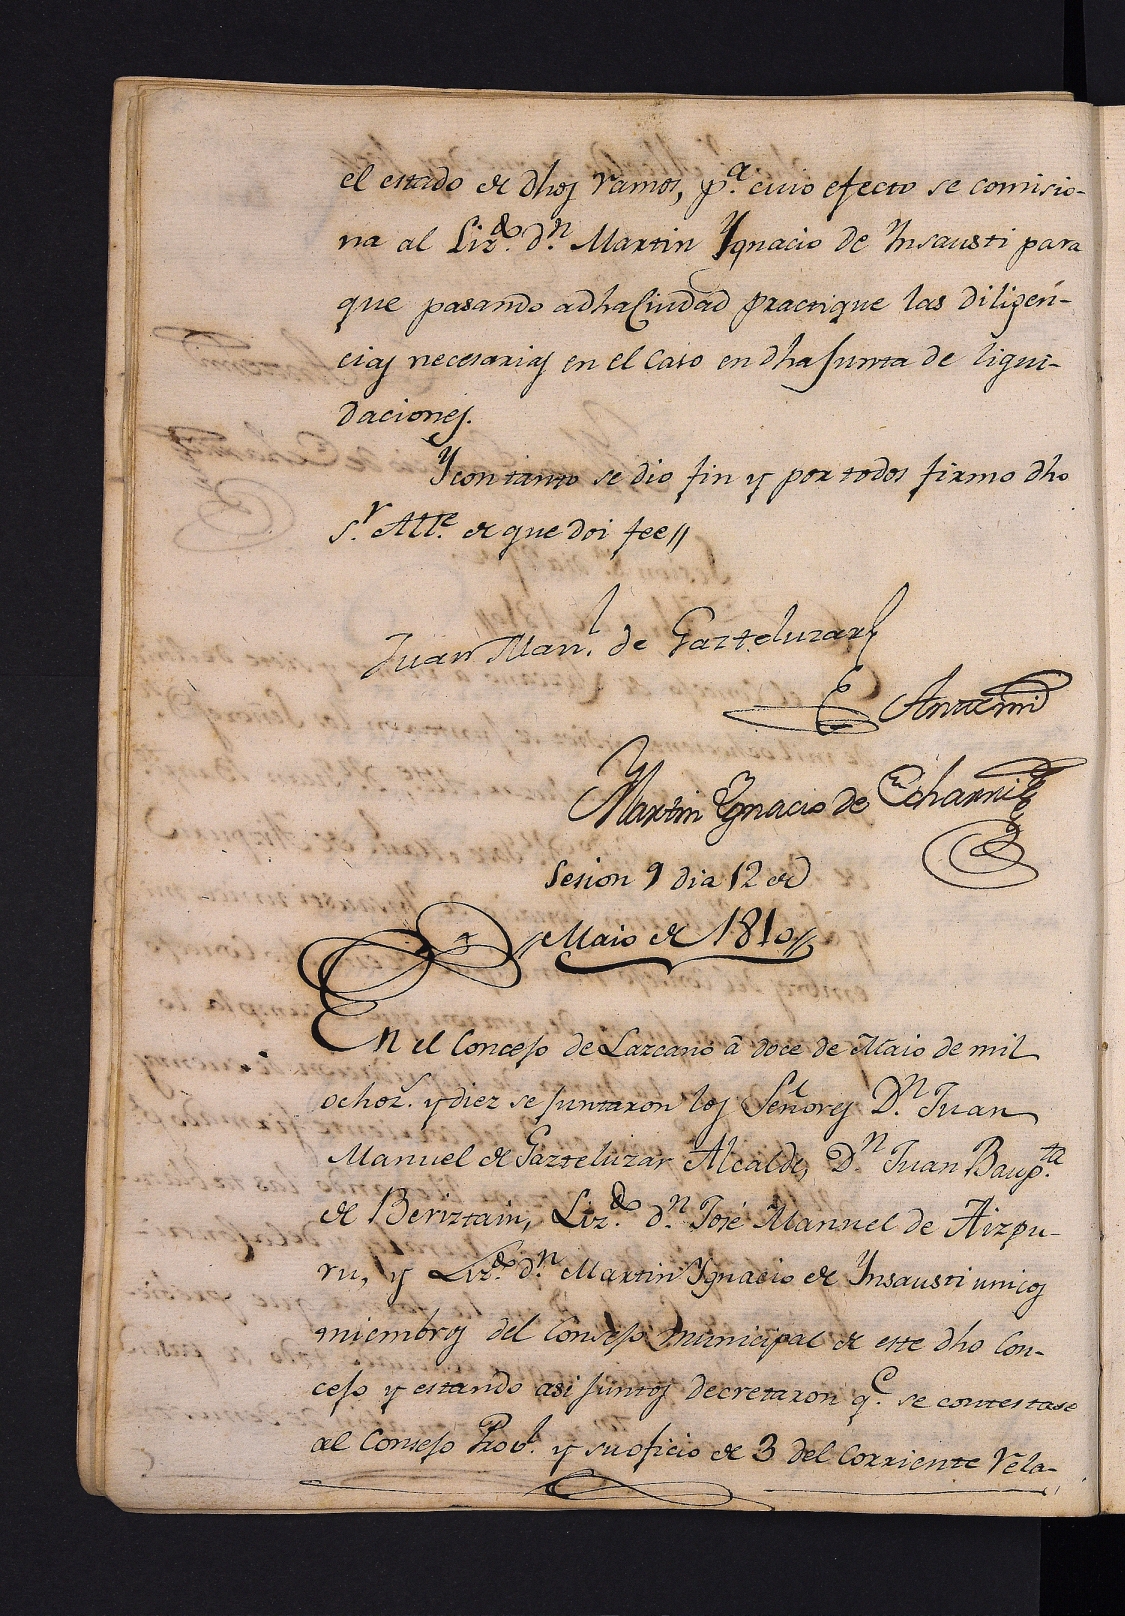 el estado de dhos ramos, p.a cuio efecto se comisio-
na al Liz.do d.n Martin Ygnacio de Ynsausti para
que pasando a dha Ciudad practique las diligen-
cias necesarias en el caso en dha Junta de liqui-
daciones.
Y con tanto se dio fin y por todos firmo dho
s.r Alle. de que doi fee //
Juan Man.l de Gazteluzar
Antemi
Martin Ygnacio de Echarri
Sesion 9 dia 12 de
Maio de 1810 //
En el Concejo de Lazcano â doce de Maio de mil
ochoz.s y diez se juntaron los Señores D.n Juan
Manuel de Gazteluzar Alcalde, D.n Juan Baup.ta
de Beriztain, Liz.do d.n José Manuel de Aizpu-
ru, y Liz.do d.n Martin Ygnacio de Ynsausti unicos
miembros del Consejo municipal de este dho Con-
cejo y estando asi juntos decretaron q.e se contestase
al Consejo Prov.l y su oficio de 3 del Corriente rela-